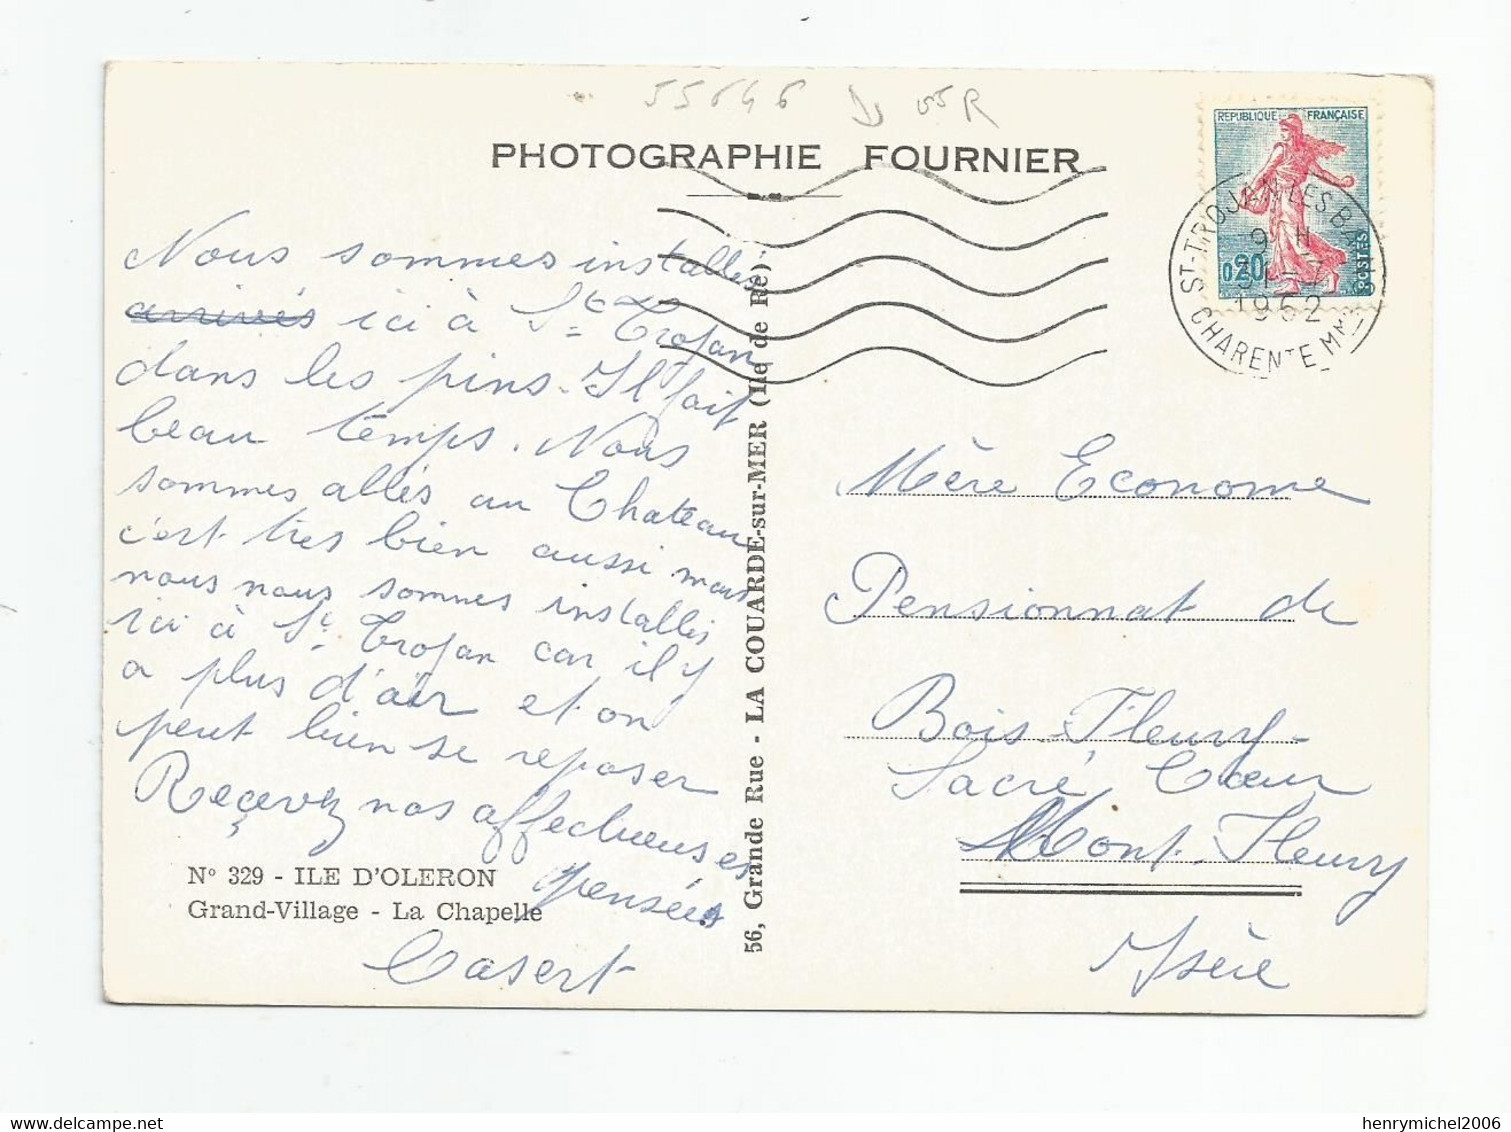 55646
PHOTOGRAPHIE FOURNIER
REPUBLIQUE FRANÇAISE
0,20
POSTES
ST-TROJAN LES BAINS
9 H
31-7
1962
CHARENTE MME
Nous sommes installés
arrivés ici à St Trojan
dans les pins. Il fait
beau temps. Nous
sommes allés au Chateau
c'est très bien aussi mais
nous nous sommes installés
ici à St Trojan car il y
a plus d'air et on
peut bien se reposer
Reçevez nos affectueuses
pensées
Casert
N° 329 - ILE D'OLERON
Grand-Village - La Chapelle
56, Grande Rue - LA COUARDE-sur-MER (Ile de Ré)
Mère Econome
Pensionnat de
Bois-Fleury-
Sacré Cœur
Mont-Fleury
Isère
henrymichel2006